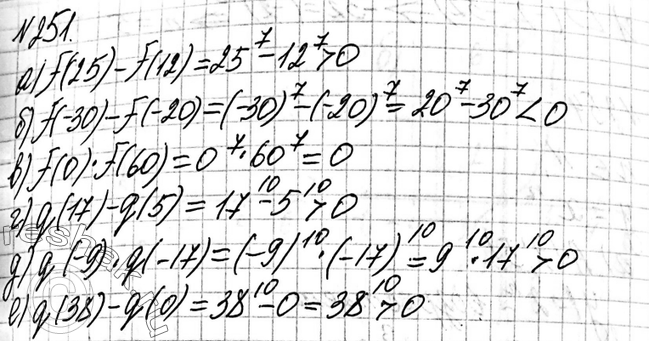 №251.
а) f(25)-f(12)=25⁷-12⁷>0
б) f(-30)-f(-20)=(-30)⁷-(-20)⁷=20⁷-30⁷<0
в) f(0)·f(60)=0⁷·60⁷=0
г) g(17)-g(5)=17¹⁰-5¹⁰>0
д) g(-9)·g(-17)=(-9)¹⁰·(-17)¹⁰=9¹⁰·17¹⁰>0
е) g(38)-g(0)=38¹⁰-0=38¹⁰>0